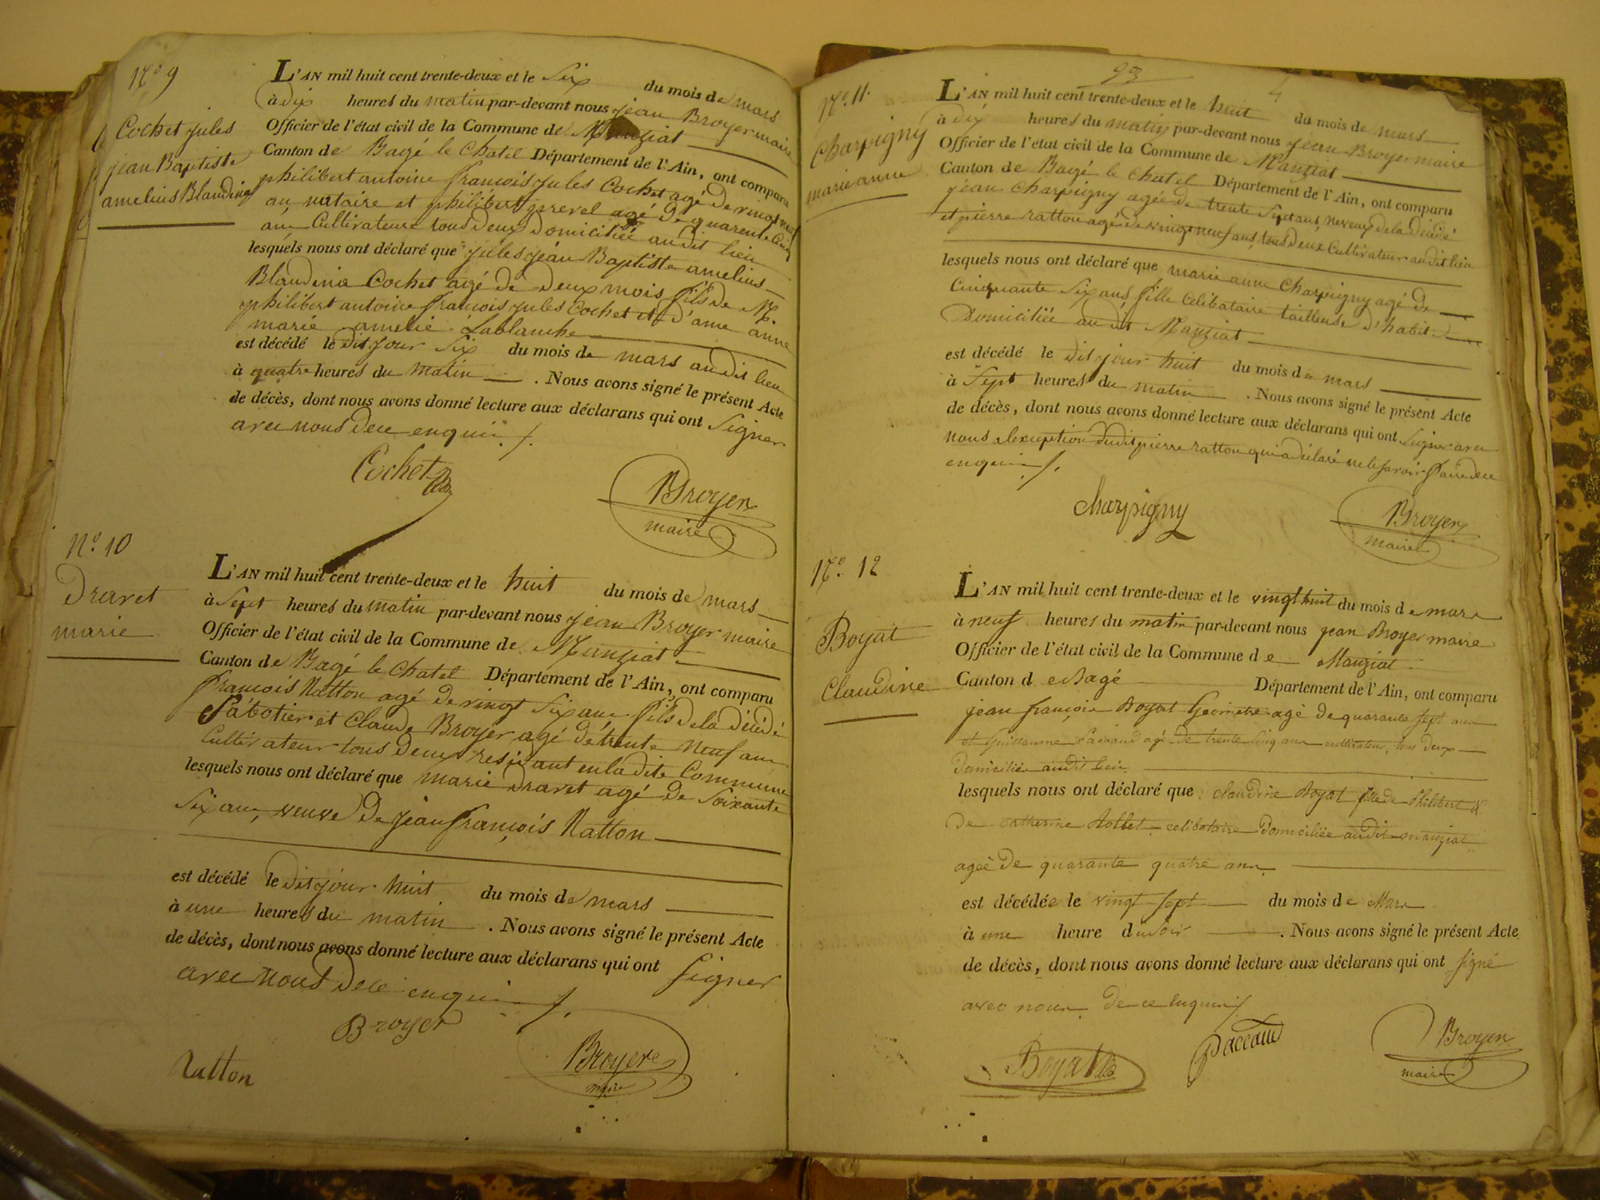 N.º 9
Cochet jules
jean Baptiste
amelius Blandina
L'AN mil huit cent trente-deux et le Six du mois de mars
à dix heures du matin par-devant nous jean Broyer maire
Officier de l'état civil de la Commune de Manziat
Canton de Bagé le Chatel Département de l'Ain, ont comparu
philibert antoine francois jules Cochet agé de vingt neuf
an, notaire et philibert prevel agé de quarente Cinq
ans Cultivateurs tous deux Domiciliée audit lieu
lesquels nous ont déclaré que jules jean Baptiste amelius
Blandina Cochet agé de Deux mois fils de M.
philibert antoine francois jules Cochet et d'ame anne
marie amelie Lablanche
est décédé le dit jour Six du mois de mars audit lieu
à quatre heures du matin . Nous avons signé le présent Acte
de décès, dont nous avons donné lecture aux déclarans qui ont Signer
avec nous de ce enquii ./.
Cochet
Broyer
maire
N.º 10
Dravet
marie
L'AN mil huit cent trente-deux et le huit du mois de mars
à Sept heures du matin par-devant nous jean Broyer maire
Officier de l'état civil de la Commune de Manziat
Canton de Bagé le Chatel Département de l'Ain, ont comparu
francois Natton agé de vingt Six ans fils de la décédé
Sabotier et Claude Broyer agé de trente Neuf ans
Cultivateur tous deux residant en la dite Commune
lesquels nous ont déclaré que marie Dravet agé de Soixante
Six ans, veuve De jean françois Natton
est décédé le dit jour huit du mois de mars
à une heures du matin . Nous avons signé le présent Acte
de décès, dont nous avons donné lecture aux déclarans qui ont Signer
avec nous De ce enqui ./.
Broyer
Natton
Broyer
maire
93
4
N.º 11.
Charpigny
marie anne
L'AN mil huit cent trente-deux et le huit du mois de mars
à dix heures du matin par-devant nous jean Broyer maire
Officier de l'état civil de la Commune de Manziat
Canton de Bagé le Chatel Département de l'Ain, ont comparu
jean Charpigny agée de trente Sept ans, neveux de la décédé
et pierre ratton agé de vingt neuf ans, tous deux Cultivateur audit lieu
lesquels nous ont déclaré que marie anne Charpigny agé de
Cinquante Six ans fille Celibataire tailleuse d'habit
Domiciliée au dit Manziat
est décédé le dit jour huit du mois de mars
à Sept heures du matin . Nous avons signé le présent Acte
de décès, dont nous avons donné lecture aux déclarans qui ont Signer avec
nous a l'exception dudit pierre ratton qui a déclaré ne le Savoir faire de ce
enqui ./.
Charpigny
Broyer
maire
N.º 12
Boyat
Claudine
L'AN mil huit cent trente-deux et le vingt huit du mois de mars
à neuf heures du matin par-devant nous jean Broyer maire
Officier de l'état civil de la Commune de Manziat
Canton de Bagé Département de l'Ain, ont comparu
jean françois Boyat Geometre agé de quarante sept ans
et Guillaume Paccaud agé de trente cinq ans cultivateur, tous deux
Domiciliée audit lieu
lesquels nous ont déclaré que Claudine Boyat fille de Philibert et
De Catherine celibataire Domiciliée audit manziat
agée De quarante quatre ans
est décédée le vingt sept du mois de Mars
à une heure du soir . Nous avons signé le présent Acte
de décès, dont nous avons donné lecture aux déclarans qui ont signé
avec nous De ce Enquis ./.
Boyat
Paccaud
Broyer
maire